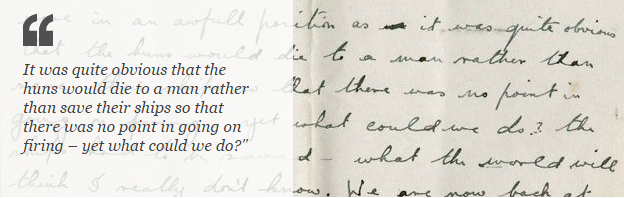 “
It was quite obvious that the
huns would die to a man rather
than save their ships so that
there was no point in going on
firing – yet what could we do?"
in an awfull position as it was quite obvious
that the huns would die to a man rather than
that there was no point in
going on yet what could we do? the
ships had to be saved - what the world will
think I really don't know. We are now back at